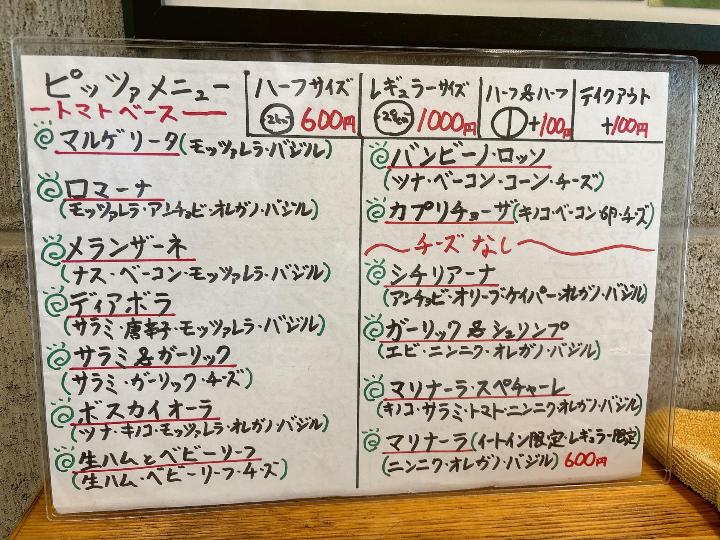 ピッツァメニュー
ートマトベースー
ハーフサイズ
600円
レギュラーサイズ
1000円
ハーフ&ハーフ
+100円
テイクアウト
+100円
マルゲリータ(モッツァレラ・バジル)
ロマーナ
(モッツァレラ・アンチョビ・オレガノ・バジル)
メランザーネ
(ナス・ベーコン・モッツァレラ・バジル)
ディアボラ
(サラミ・唐辛子・モッツァレラ・バジル)
サラミ&ガーリック
(サラミ・ガーリック・チーズ)
ボスカイオーラ
(ツナ・キノコ・モッツァレラ・オレガノ・バジル)
生ハムとベビーリーフ
(生ハム・ベビーリーフ・チーズ)
バンビーノ・ロッソ
(ツナ・ベーコン・コーン・チーズ)
カプリチョーザ(キノコ・ベーコン・卵・チーズ)
チーズなし
シチリアーナ
(アンチョビ・オリーブ・ケイパー・オレガノ・バジル)
ガーリック&シュリンプ
(エビ・ニンニク・オレガノ・バジル)
マリナーラ・スペチャーレ
(キノコ・サラミ・トマト・ニンニク・オレガノ・バジル)
マリナーラ(イートイン限定・レギュラー限定)
(ニンニク・オレガノ・バジル) 600円